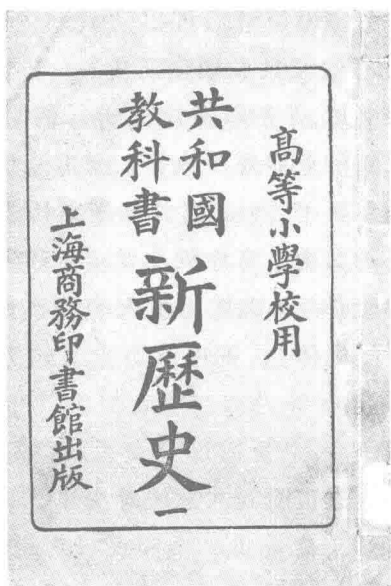 高等小學校用
共和國
教科書
新歷史一
上海商務印書館出版